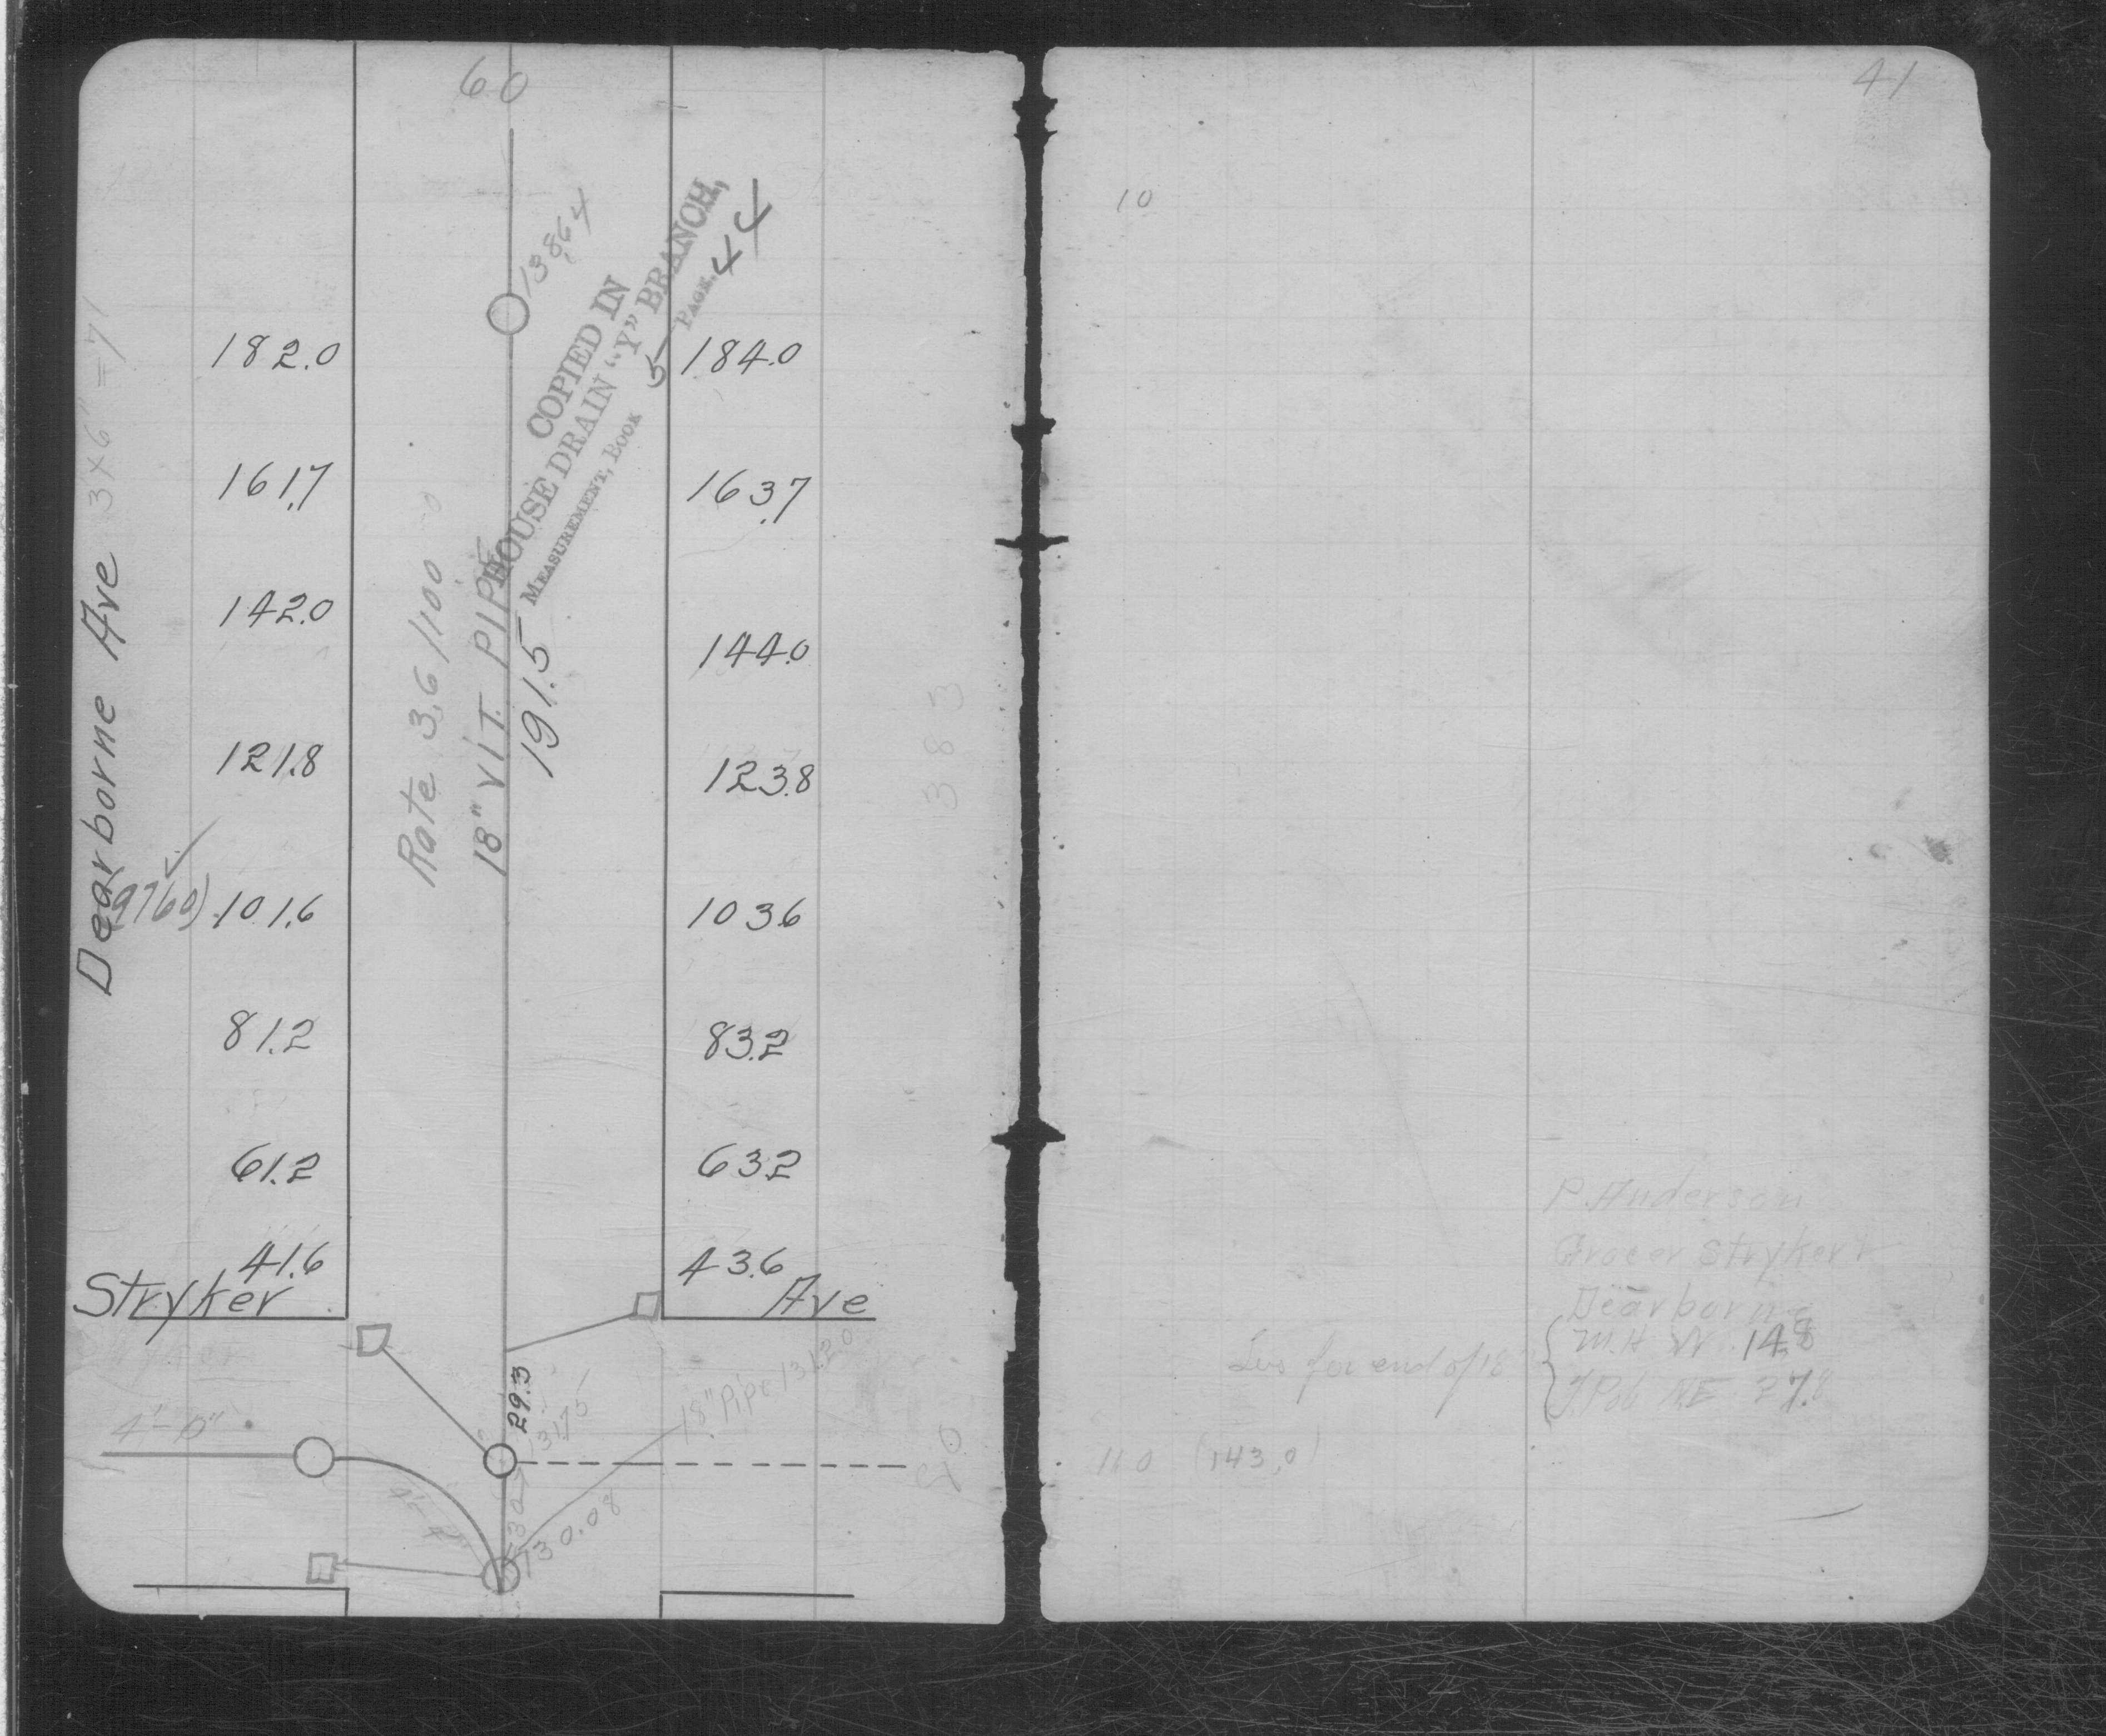 60
138.64
COPIED IN
HOUSE DRAIN "Y" BRANCH,
MEASUREMENT, BOOK 5 PAGE, 44
Dearborne Ave 3x6" = 7'
182.0
184.0
161.7
163.7
142.0
144.0
Rate 3.6/100
18" VIT. PIPE
191.5
121.8
123.8
383
(9760) 101.6
103.6
81.2
83.2
61.2
63.2
41.6
43.6
Stryker Ave
29.3
131.75
18" Pipe 131.20
4'-6"
130.08
41
10
P. Anderson
Grocer Stryker &
Dearborne
M.H. W. 14.8
for end of 18
N.E. 27.8
11.0 (143.0)